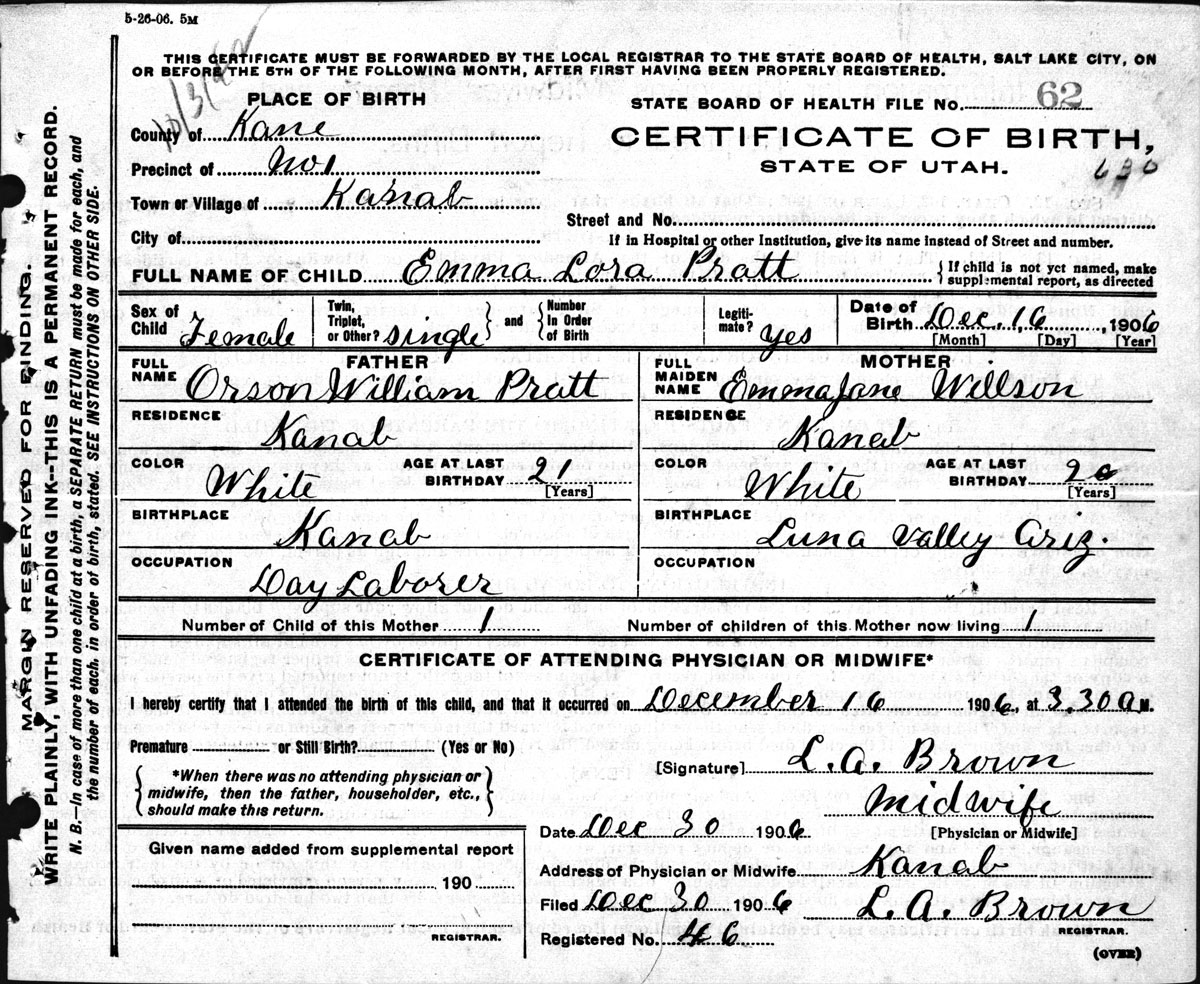 5-26-06. 5M
THIS CERTIFICATE MUST BE FORWARDED BY THE LOCAL REGISTRAR TO THE STATE BOARD OF HEALTH, SALT LAKE CITY, ON
OR BEFORE THE 5TH OF THE FOLLOWING MONTH, AFTER FIRST HAVING BEEN PROPERLY REGISTERED.
MARGIN RESERVED FOR BINDING.
WRITE PLAINLY, WITH UNFADING INK--THIS IS A PERMANENT RECORD.
N. B.--In case of more than one child at a birth, a SEPARATE RETURN must be made for each, and
the number of each, in order of birth, stated. SEE INSTRUCTIONS ON OTHER SIDE.
PLACE OF BIRTH
County of Kane
Precinct of No 1
Town or Village of Kanab
City of
STATE BOARD OF HEALTH FILE No. 62
CERTIFICATE OF BIRTH,
STATE OF UTAH.
630
Street and No.
If in Hospital or other Institution, give its name instead of Street and number.
FULL NAME OF CHILD Emma Lora Pratt {If child is not yet named, make
supplemental report, as directed
Sex of Child Female
Twin, Triplet, or Other? single } and { Number In Order of Birth
Legiti- mate? Yes
Date of Birth Dec. 16, 1906
[Month] [Day] [Year]
FATHER
FULL NAME Orson William Pratt
RESIDENCE
Kanab
COLOR White AGE AT LAST BIRTHDAY 21
[Years]
BIRTHPLACE
Kanab
OCCUPATION
Day Laborer
MOTHER
FULL MAIDEN NAME Emma Jane Willson
RESIDENCE
Kanab
COLOR White AGE AT LAST BIRTHDAY 20
[Years]
BIRTHPLACE
Luna Valley Ariz.
OCCUPATION
Number of Child of this Mother 1 Number of children of this Mother now living 1
CERTIFICATE OF ATTENDING PHYSICIAN OR MIDWIFE*
I hereby certify that I attended the birth of this child, and that it occurred on December 16 1906, at 3.30 A M.
Premature or Still Birth? (Yes or No)
{*When there was no attending physician or
midwife, then the father, householder, etc.,
should make this return.}
Given name added from supplemental report
190
REGISTRAR.
[Signature] L.A. Brown
Midwife
Date Dec 30 1906 [Physician or Midwife]
Address of Physician or Midwife Kanab
Filed Dec 30 1906 L.A. Brown
REGISTRAR.
Registered No. 46
(OVER)